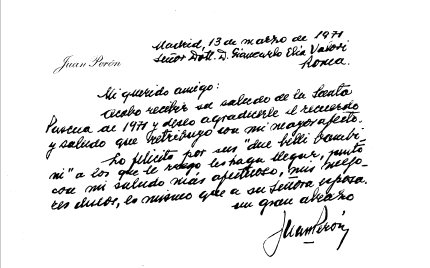 Madrid, 13 de marzo de 1971
Señor Dott. D. Giancarlo Elia Valori
Juan Perón
Roma.
Mi querido amigo:
Acabo recibir su saludo de la Santa
Pascua de 1971 y deseo agradecerle el recuerdo
y saludo que retribuyo con mi mayor afecto.
Lo felicito por sus "due belli bambi-
ni" a los que le ruego les haga llegar, junto
con mi saludo más afectuoso, mis mejo-
res deseos, lo mismo que a su Señora esposa.
Un gran abrazo
Juan Perón